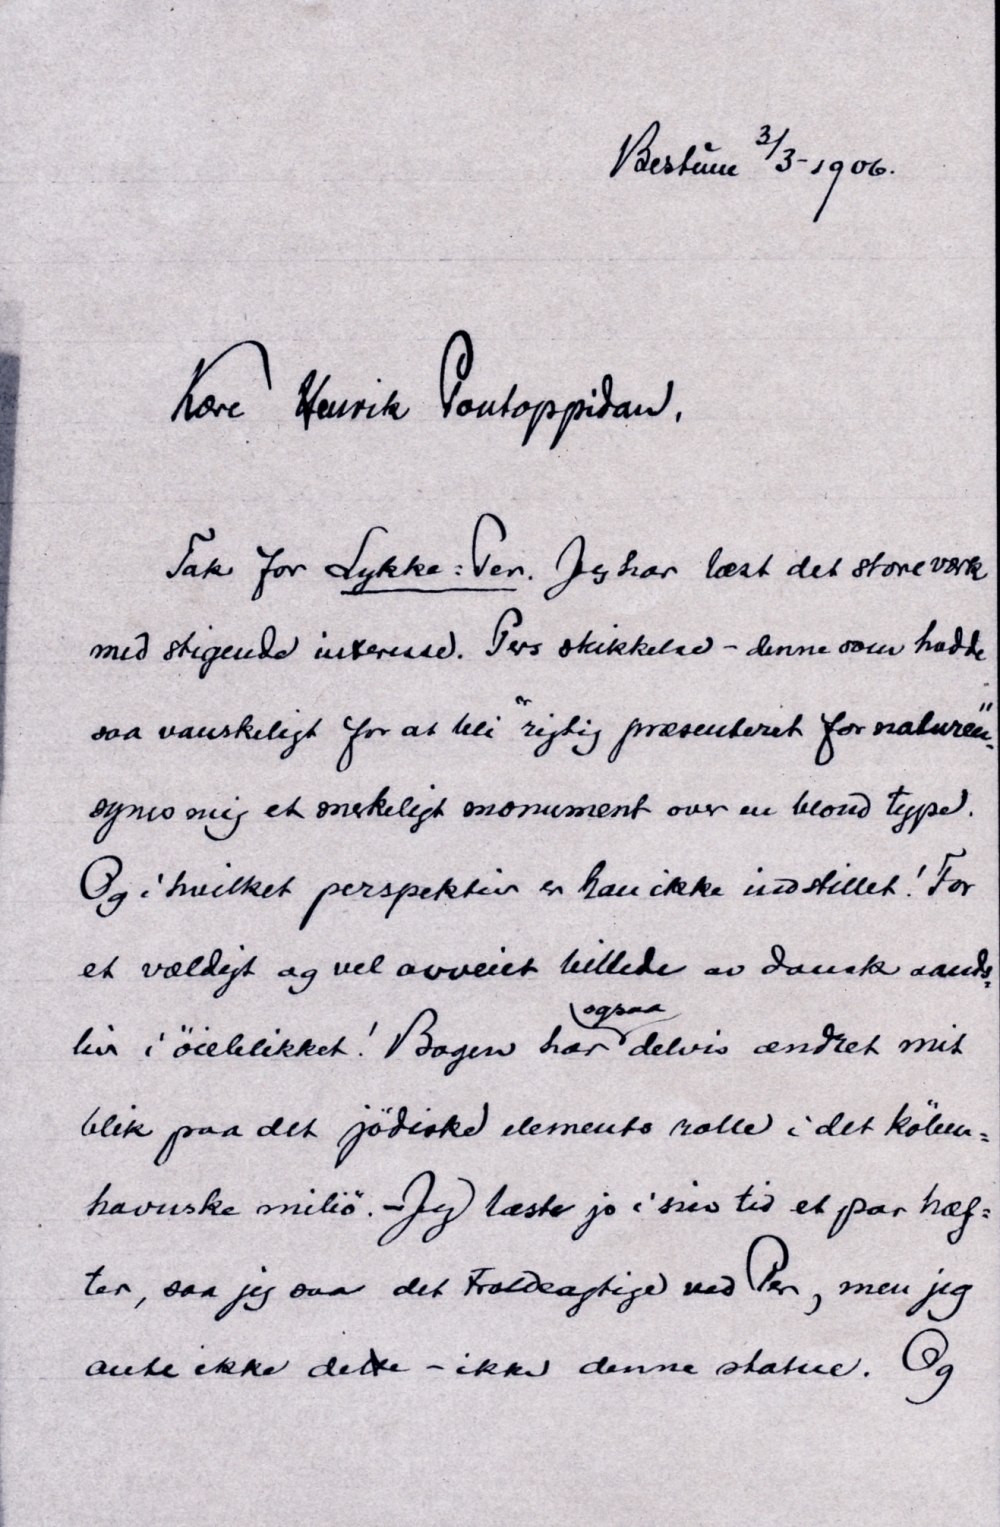 Bestum 3/3-1906.
Kære Henrik Pontoppidan,
Tak for Lykke=Per. Jeg har læst det store værk
med stigende interesse. Pers skikkelse - denne som hadde
saa vanskeligt for at bli "rigtig præsenteret for naturen"-
synes mig et merkeligt monument over en blond type.
Og i hvilket perspektiv er han ikke indstillet! For
et vældigt og vel avveiet billede av dansk aands=
liv i öieblikket! Bogen har ogsaa delvis ændret mit
blik paa det jödiske elements rolle i det köben=
havnske miliö. - Jeg læste jo i sin tid et par hæf=
ter, saa jeg saa det troldeagtige ved Per, men jeg
ante ikke dette - ikke denne statue. Og